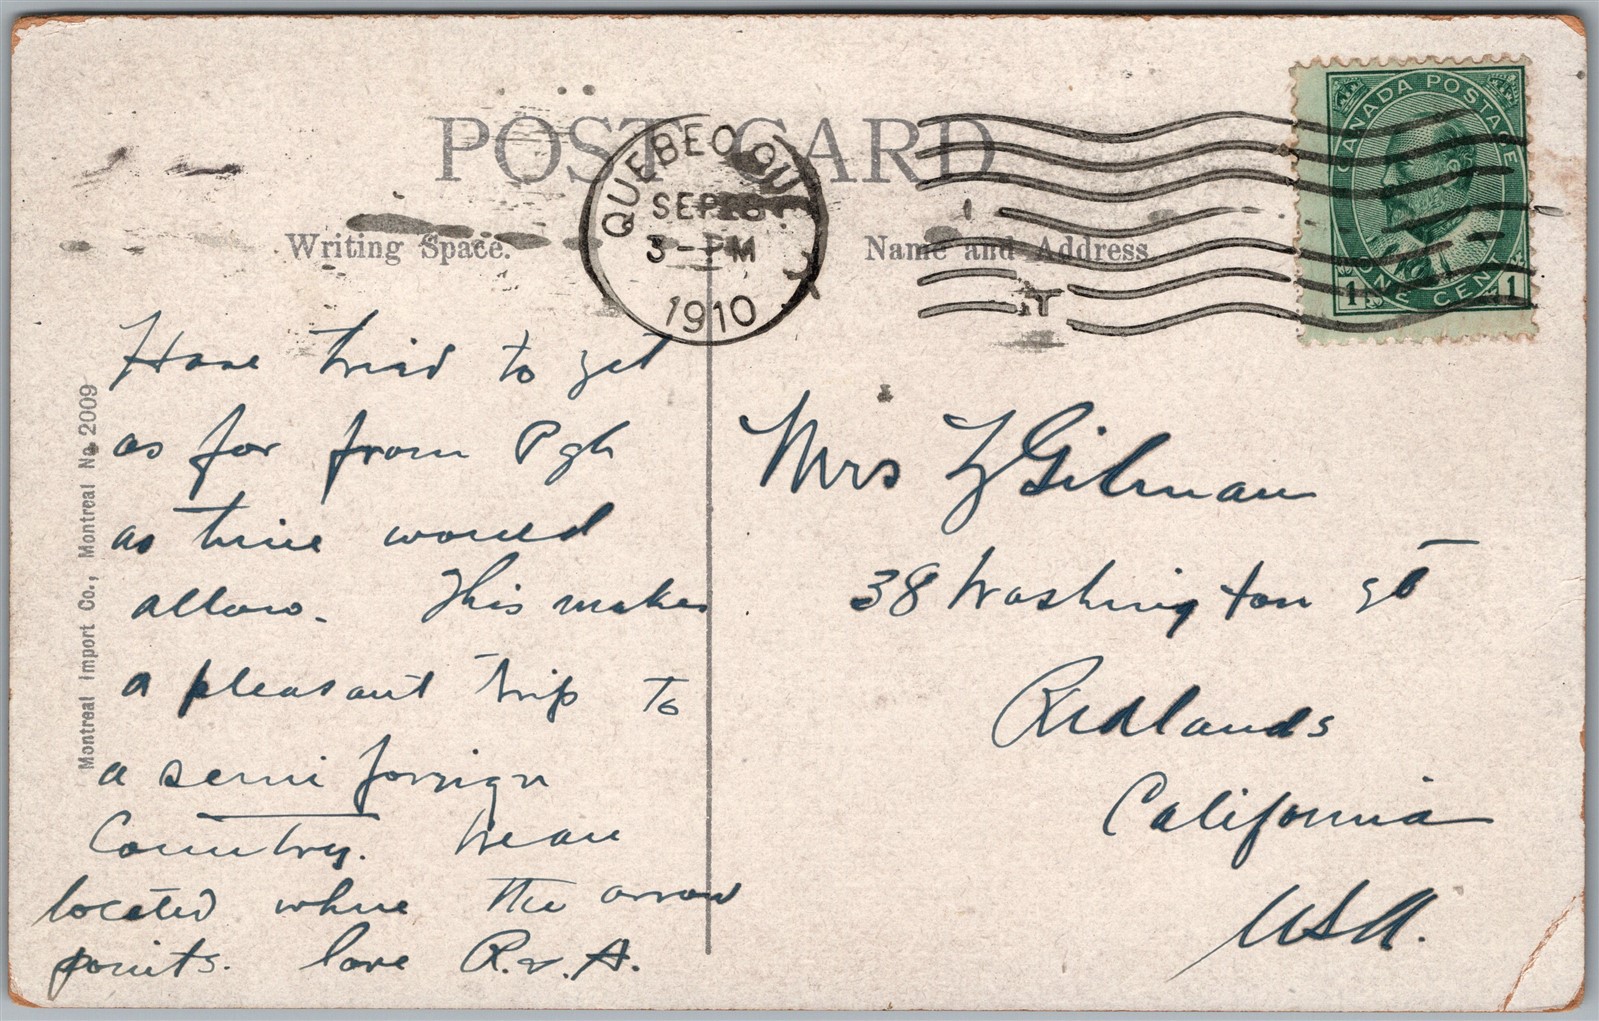 POST CARD
QUEBEC QUE
SEP 26
3-PM
1910
CANADA POSTAGE
1 ONE CENT 1
Writing Space.
Name and Address
Have tried to get
as far from Pgh
as time would
allow. This makes
a pleasant trip to
a semi foreign
Country. We are
located where the arrow
points. Love R. & A.
Mrs Gilman
38 Washington St
Redlands
California
USA.
Montreal Import Co., Montreal No. 2009